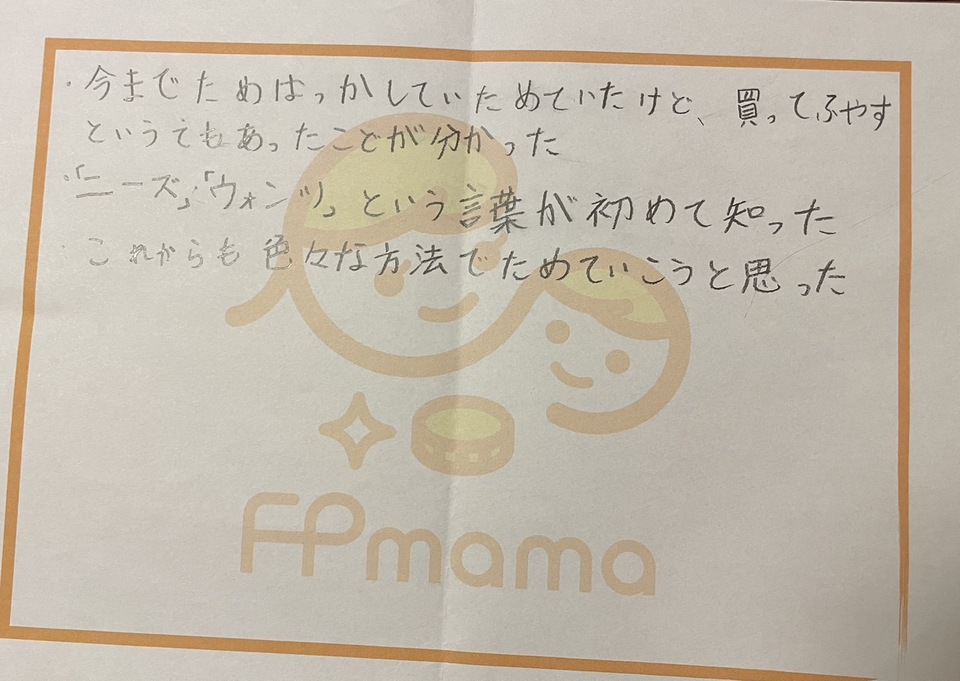 ・今までためばっかしていためていたけど、買ってふやす
というてもあったことが分かった
・「ニーズ」「ウォンツ」という言葉が初めて知った
・これからも色々な方法でためていこうと思った
FPmama